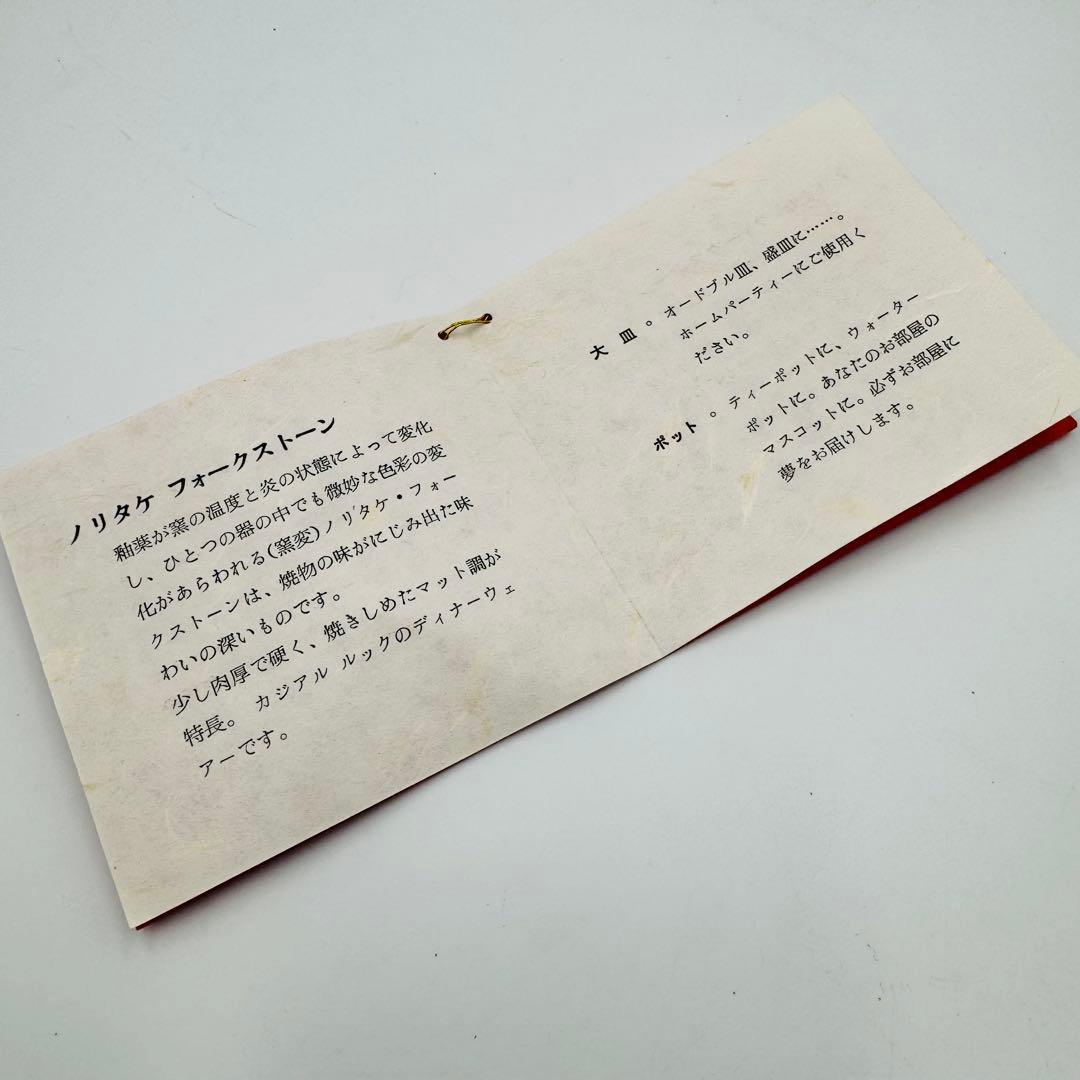 ノリタケ フォークストーン
釉薬が窯の温度と炎の状態によって変化
し、ひとつの器の中でも微妙な色彩の変
化があらわれる(窯変)ノリタケ・フォー
クストーンは、焼物の味がにじみ出た味
わいの深いものです。
少し肉厚で硬く、焼きしめたマット調が
特長。カジアル ルックのディナーウェ
アーです。
大皿。オードブル皿、盛皿に……。
ホームパーティーにご使用く
ださい。
ポット。ティーポットに、ウォーター
ポットに。あなたのお部屋の
マスコットに。必ずお部屋に
夢をお届けします。